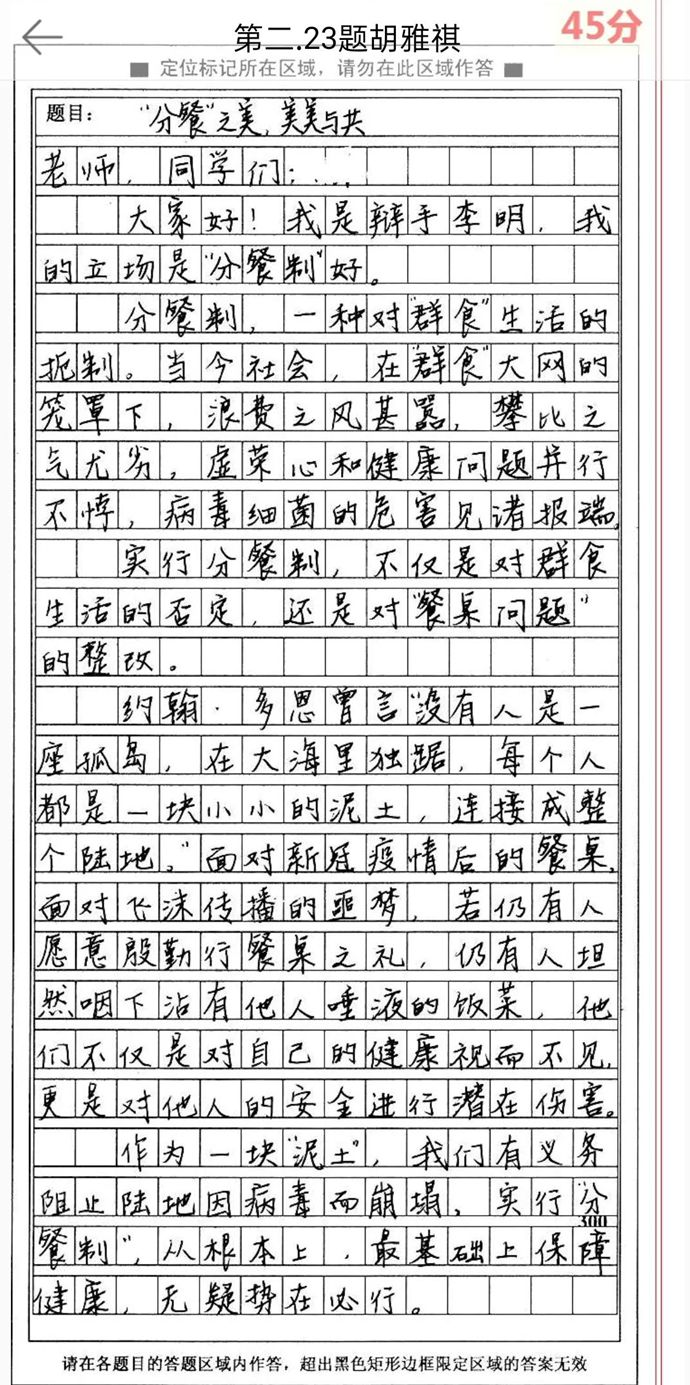 第二.23题胡雅祺
45分
定位标记所在区域，请勿在此区域作答
题目： “分餐”之美，美美与共
老师，同学们：...
大家好！我是辩手李明，我
的立场是“分餐制”好。
分餐制，一种对“群食”生活的
扼制。当今社会，在“群食”大网的
笼罩下，浪费之风甚嚣，攀比之
气尤劣，虚荣心和健康问题并行
不悖，病毒细菌的危害见诸报端，
实行分餐制，不仅是对群食
生活的否定，还是对“餐桌问题”
的整改。
约翰·多恩曾言“没有人是一
座孤岛，在大海里独踞，每个人
都是一块小小的泥土，连接成整
个陆地。”面对新冠疫情后的餐桌，
面对飞沫传播的噩梦，若仍有人
愿意殷勤行餐桌之礼，仍有人坦
然咽下沾有他人唾液的饭菜，他
们不仅是对自己的健康视而不见，
更是对他人的安全进行潜在伤害。
作为一块“泥土”，我们有义务
阻止陆地因病毒而崩塌，实行“分
300
餐制”，从根本上，最基础上保障
健康，无疑势在必行。
请在各题目的答题区域内作答，超出黑色矩形边框限定区域的答案无效